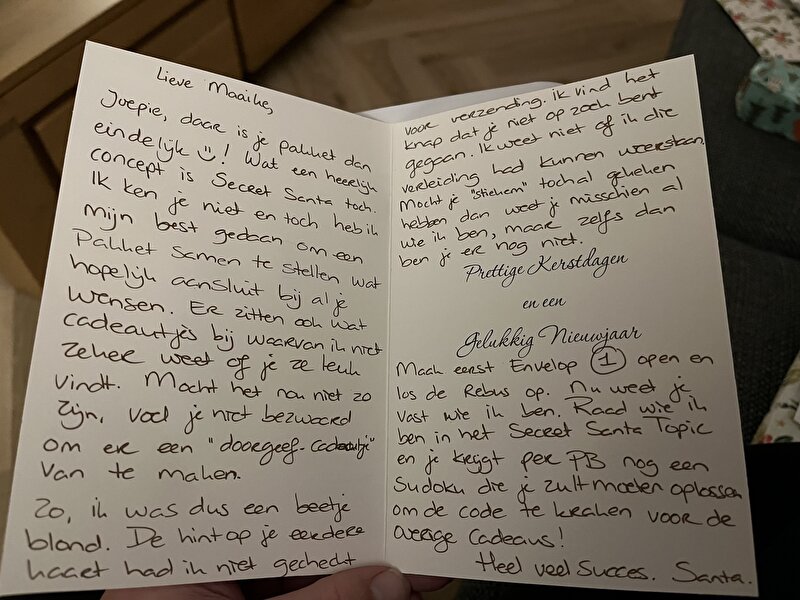 Lieve Maaike,
Joepie, daar is je pakket dan
eindelijk! Wat een heerlijk
concept is Secret Santa toch.
Ik ken je niet en toch heb ik
mijn best gedaan om een
Pakket samen te stellen wat
hopelijk aansluit bij al je
wensen. Er zitten ook wat
cadeautjes bij waarvan ik niet
zeker weet of je ze leuk
vindt. Mocht het nou niet zo
zijn, voel je niet bezwaard
om er een "doorgeef-cadeautje"
van te maken.
Zo, ik was dus een beetje
blond. De hint op je eerdere
kaart had ik niet gecheckt
voor verzending. Ik vind het
knap dat je niet op zoek bent
gegaan. Ik weet niet of ik die
verleiding had kunnen weerstaan.
Mocht je "stiekem" toch al gekeken
hebben dan weet je misschien al
wie ik ben, maar zelfs dan
ben je er nog niet.
Prettige Kerstdagen
en een
Gelukkig Nieuwjaar
Maak eerst Envelop 1 open en
los de Rebus op. Nu weet je
vast wie ik ben. Raad wie ik
ben in het Secret Santa Topic
en je krijgt per PB nog een
Sudoku die je zult moeten oplossen
om de code te kraken voor de
overige cadeaus!
Heel veel succes. Santa.